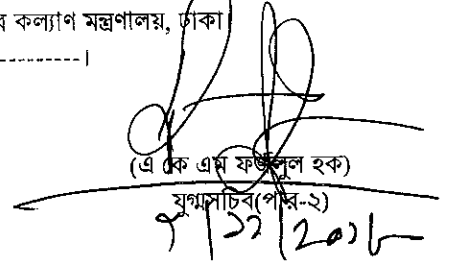 র কল্যাণ মন্ত্রণালয়, ঢাকা
----------।
(এ কে এম ফজলুল হক)
যুগ্মসচিব(পার-২)